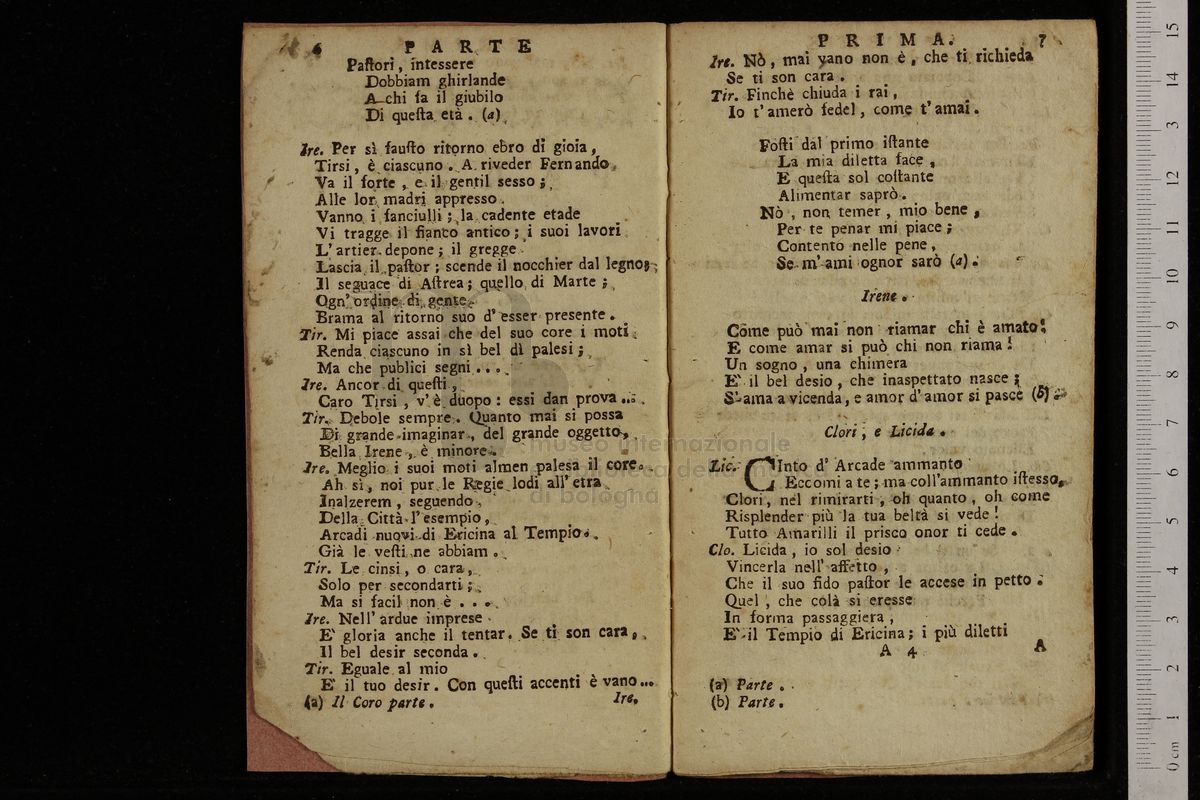 6 PARTE
Paſtori, inteſſere
Dobbiam ghirlande
A chi fa il giubilo
Di queſta età. (a)
Ire. Per sì fauſto ritorno ebro di gioia,
Tirsi, è ciascuno. A riveder Fernando
Va il forte, e il gentil sesso;
Alle lor madri appresso
Vanno i fanciulli; la cadente etade
Vi tragge il fianco antico; i suoi lavori
L' artier depone; il gregge
Lascia il paſtor; scende il nocchier dal legno;
Il seguace di Aſtrea; quello di Marte;
Ogn' ordine di gente
Brama al ritorno suo d' esser presente.
Tir. Mi piace assai che del suo core i moti
Renda ciascuno in sì bel dì palesi;
Ma che publici segni...
Ire. Ancor di queſti,
Caro Tirsi, v' è duopo: essi dan prova...
Tir. Debole sempre. Quanto mai si possa
Di grande imaginar, del grande oggetto,
Bella Irene, è minore.
Ire. Meglio i suoi moti almen palesa il core.
Ah sì, noi pur le Regie lodi all' etra
Inalzerem, seguendo
Della Città l' esempio,
Arcadi nuovi di Ericina al Tempio.
Già le veſti ne abbiam.
Tir. Le cinsi, o cara,
Solo per secondarti;
Ma sì facil non è . . .
Ire. Nell' ardue imprese
E' gloria anche il tentar. Se ti son cara,
Il bel desir seconda.
Tir. Eguale al mio
E' il tuo desir. Con queſti accenti è vano...
(a) Il Coro parte.
Ire.
PRIMA. 7
Ire. Nò, mai vano non è, che ti richieda
Se ti son cara.
Tir. Finchè chiuda i rai,
Io t' amerò fedel, come t' amai.
Foſti dal primo iſtante
La mia diletta face,
E queſta sol coſtante
Alimentar saprò.
Nò, non temer, mio bene,
Per te penar mi piace;
Contento nelle pene,
Se m' ami ognor sarò (a).
Irene.
Come può mai non riamar chi è amato!
E come amar si può chi non riama!
Un sogno, una chimera
E' il bel desio, che inaspettato nasce;
S' ama a vicenda, e amor d' amor si pasce (b).
Clori, e Licida.
Lic. CInto d' Arcade ammanto
Eccomi a te; ma coll' ammanto iſtesso,
Clori, nel rimirarti, oh quanto, oh come
Risplender più la tua beltà si vede!
Tutto Amarilli il prisco onor ti cede.
Clo. Licida, io sol desio
Vincerla nell' affetto,
Che il suo fido paſtor le accese in petto.
Quel, che colà si eresse
In forma passaggiera,
E' il Tempio di Ericina; i più diletti
A 4 A
(a) Parte.
(b) Parte.
museo internazionale
biblioteca della musica
di bologna
0 cm 1 2 3 4 5 6 7 8 9 10 11 12 13 14 15